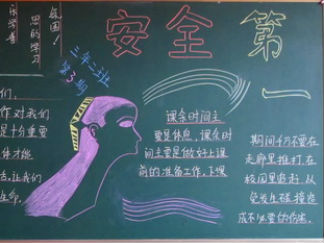 乐学善
思的学习
氛围!
安全第
一
第3期
们,
作对我们
是十分重要
体才能
活,让我们
生命.
课余时间主
要是休息,课余时
间主要是做好上课
前的准备工作,下课
期间千万不要在
走廊里推打,在
校园里追赶,以
免发生碰撞造
成不必要的伤害.